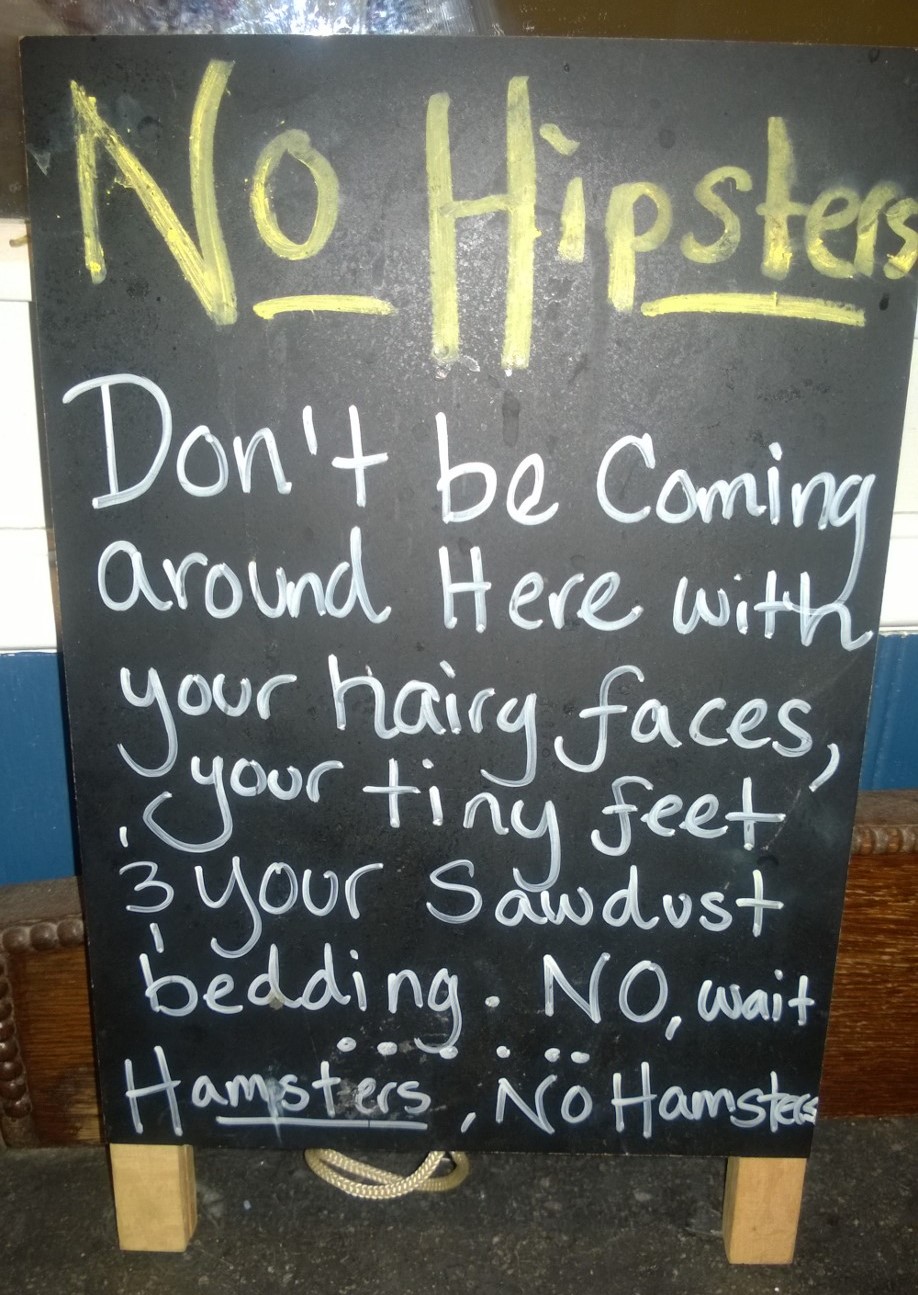 No Hipsters
Don't be Coming
around Here with
your hairy faces,
your tiny feet
& your Sawdust
bedding. NO, wait
......
Hamsters, No Hamsters